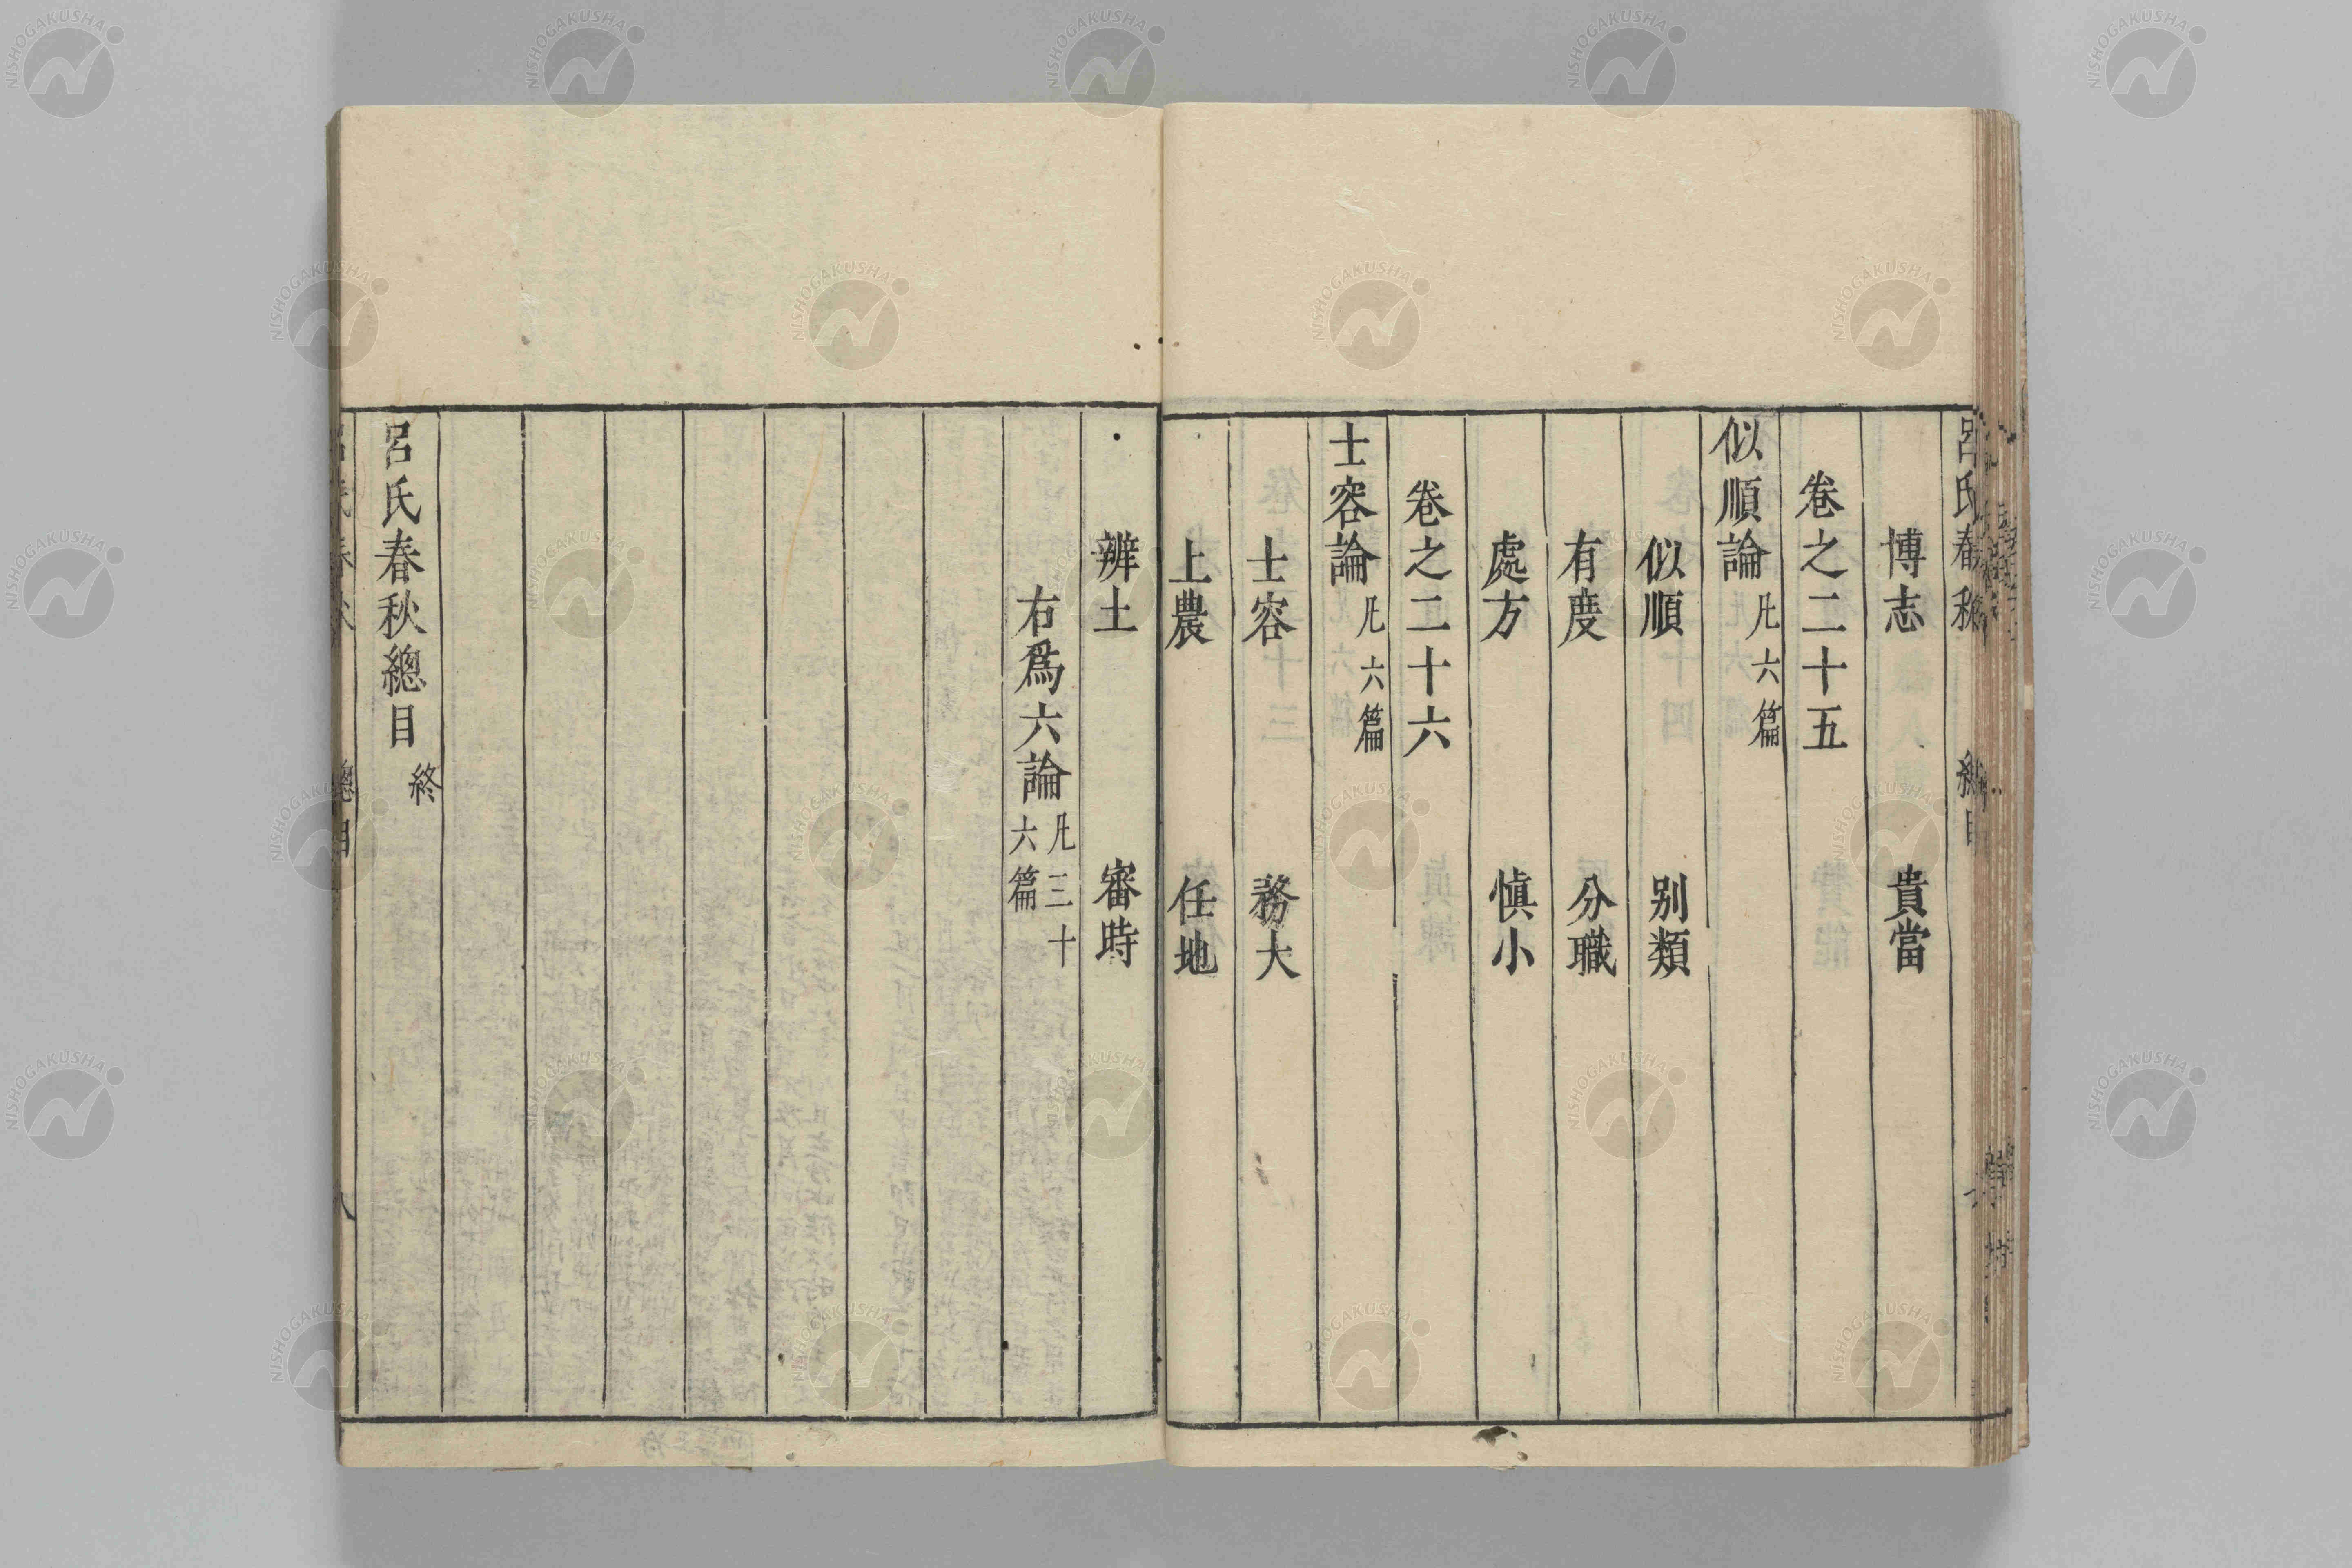 呂氏春秋　總目
博志　貴當
卷之二十五
似順論凡六篇
似順　別類
有度　分職
處方　慎小
卷之二十六
士容論凡六篇
士容　務大
上農　任地
辨土　審時
右爲六論凡三十六篇
呂氏春秋總目終
呂氏春秋　總目　八
NISHOGAKUSHA